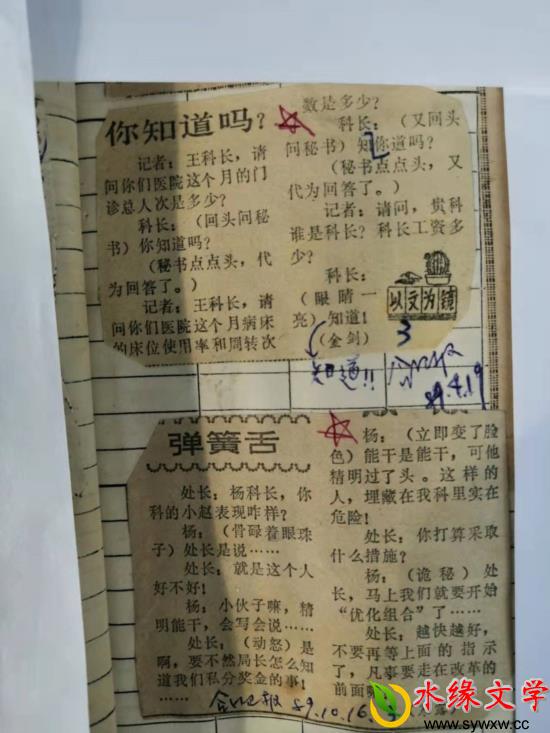 你知道吗?
记者:王科长,请
问你们医院这个月的门
诊总人次是多少?
科长:(回头问秘
书)你知道吗?
(秘书点点头,代
为回答了。)
记者:王科长,请
问你们医院这个月病床
的床位使用率和周转次
数是多少?
科长:(又回头
问秘书)知你道吗?
(秘书点点头,又
代为回答了。)
记者:请问,贵科
谁是科长?科长工资多
少?
科长:
(眼睛一
亮)知道!
(金剑)
以文为镜
3
知道!!
89.4.19
弹簧舌
处长:杨科长,你
科的小赵表现咋样?
杨:(骨碌着眼珠
子)处长是说……
处长:就是这个人
好不好!
杨:小伙子嘛,精
明能干,会写会说……
处长:(动怒)是
啊,要不然局长怎么知
道我们私分奖金的事!
……
杨:(立即变了脸
色)能干是能干,可他
精明过了头。这样的
人,埋藏在我科里实在
危险!
处长:你打算采取
什么措施?
杨:(诡秘)处
长,马上我们就要开始
“优化组合”了……
处长:越快越好,
不要再等上面的指示
了,凡事要走在改革的
前面嘛
89.10.16
水缘文学
www.sywxw.cc